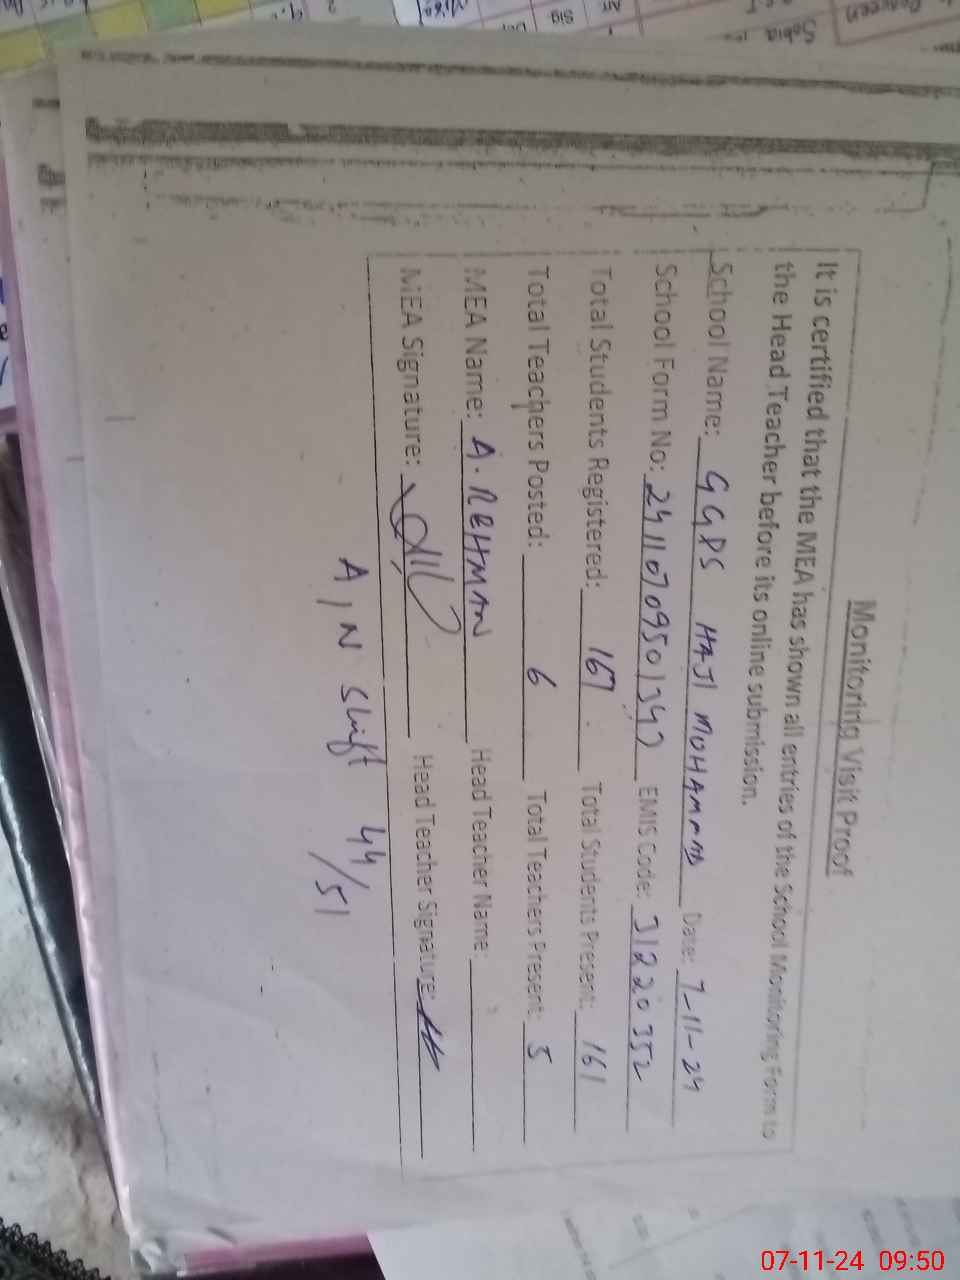 Monitoring Visit Proof
It is certified that the MEA has shown all entries of the School Monitoring Form to
the Head Teacher before its online submission.
School Name: GGPS HAJI MOHAMMAD Date: 7-11-24
School Form No: EMIS Code: 31220352
Total Students Registered: 167 Total Students Present: 161
Total Teachers Posted: 6 Total Teachers Present: 5
MEA Name: A. REHMAN Head Teacher Name:
MEA Signature: Head Teacher Signature:
A/N Shift 44/51
Sobia
Sig
07-11-24 09:50